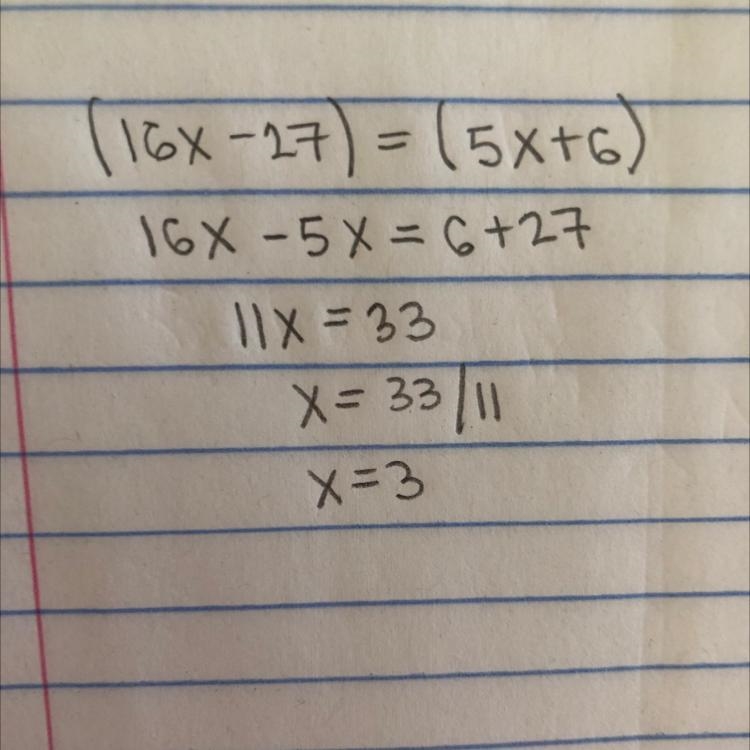 (16x-27) = (5x+6)
16x -5x = 6+27
11x = 33
x = 33/11
x=3